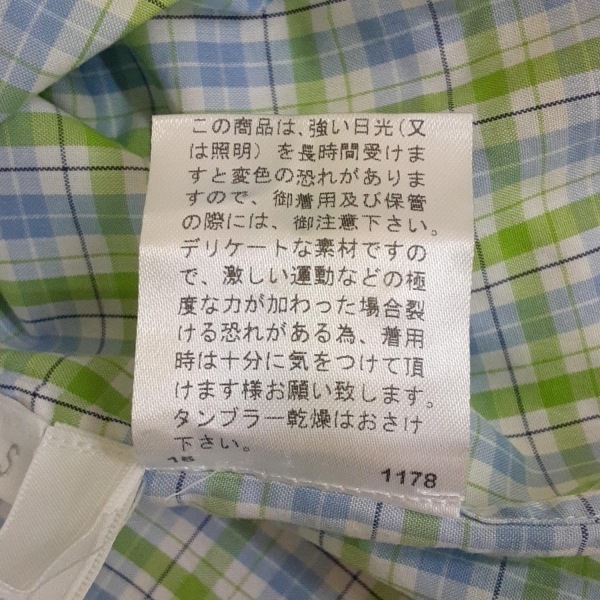 この商品は、強い日光(又
は照明)を長時間受けま
すと変色の恐れがありま
すので、御着用及び保管
の際には、御注意下さい。
デリケートな素材ですの
で、激しい運動などの極
度な力が加わった場合裂
ける恐れがある為、着用
時は十分に気をつけて頂
けます様お願い致します。
タンブラー乾燥はおさけ
下さい。
1178
S